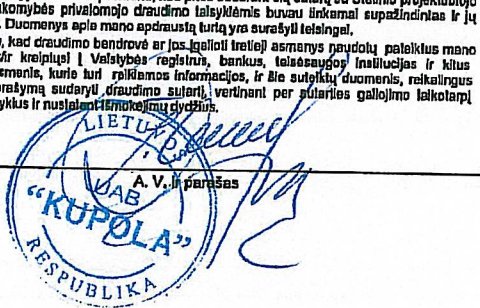 akomybės privalomojo draudimo taisyklėmis buvau tinkamai supažindintas ir jų
. Duomenys apie mano apdraustą turtą yra surašyti teisingai.
, kad draudimo bendrovė ar jos įgalioti tretieji asmenys naudotų pateiktus mano
ir kreiptųsi į Valstybės registrus, bankus, teisėsaugos institucijas ir kitus
smenis, kurie turi reikiamos informacijos, ir šie suteiktų duomenis, reikalingus
prašymą sudaryti draudimo sutartį, vertinant per sutarties galiojimo laikotarpį
ykius ir nustatant išmokėjimų dydžius.
A. V. ir parašas
LIETUVOS
UAB
"KUPOLA"
RESPUBLIKA